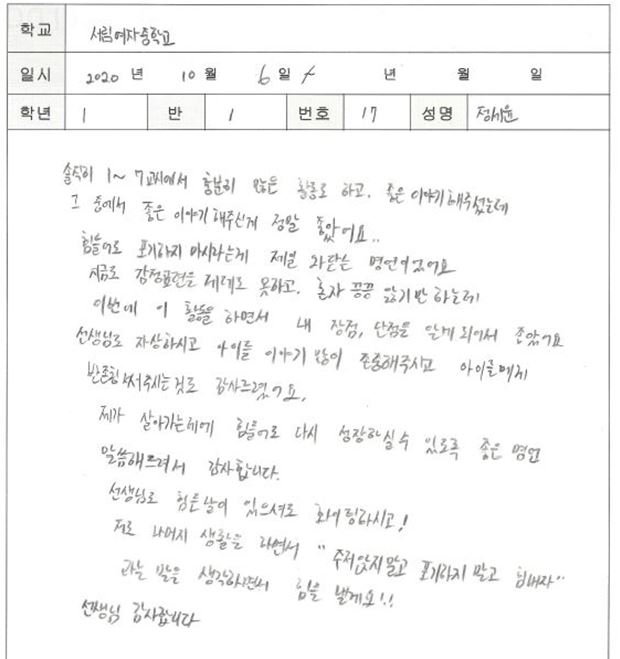 학교 서림여자중학교
일시 2020 년 10 월 6 일 ~ 년 월 일
학년 1 반 1 번호 17 성명 정세윤
솔직히 1~7교시에서 충분히 많은 활동도 하고, 좋은 이야기해주셨는데
그 중에서 좋은 이야기 해주신게 정말 좋았어요..
힘들어도 포기하지 마시라는게 제일 와닿는 명언이었어요
지금도 감정표현을 제데로 못하고, 혼자 끙끙 앓기만 하는데
이번에 이 활동을 하면서 내 장점, 단점을 알게 되어서 좋았어요
선생님도 자상하시고 아이들 이야기 많이 존중해주시고 아이들에게
반존칭 써주시는것도 감사드렸어요.
제가 살아가는데에 힘들어도 다시 성장하실수 있도록 좋은 명언
말씀해드려서 감사합니다.
선생님도 힘든날이 있으셔도 화이팅하시고!
저도 나머지 생활을 하면서 "주저앉지말고 포기하지 말고 힘내자"
라는 말을 생각하면서 힘을 낼게요!!
선생님 감사합니다